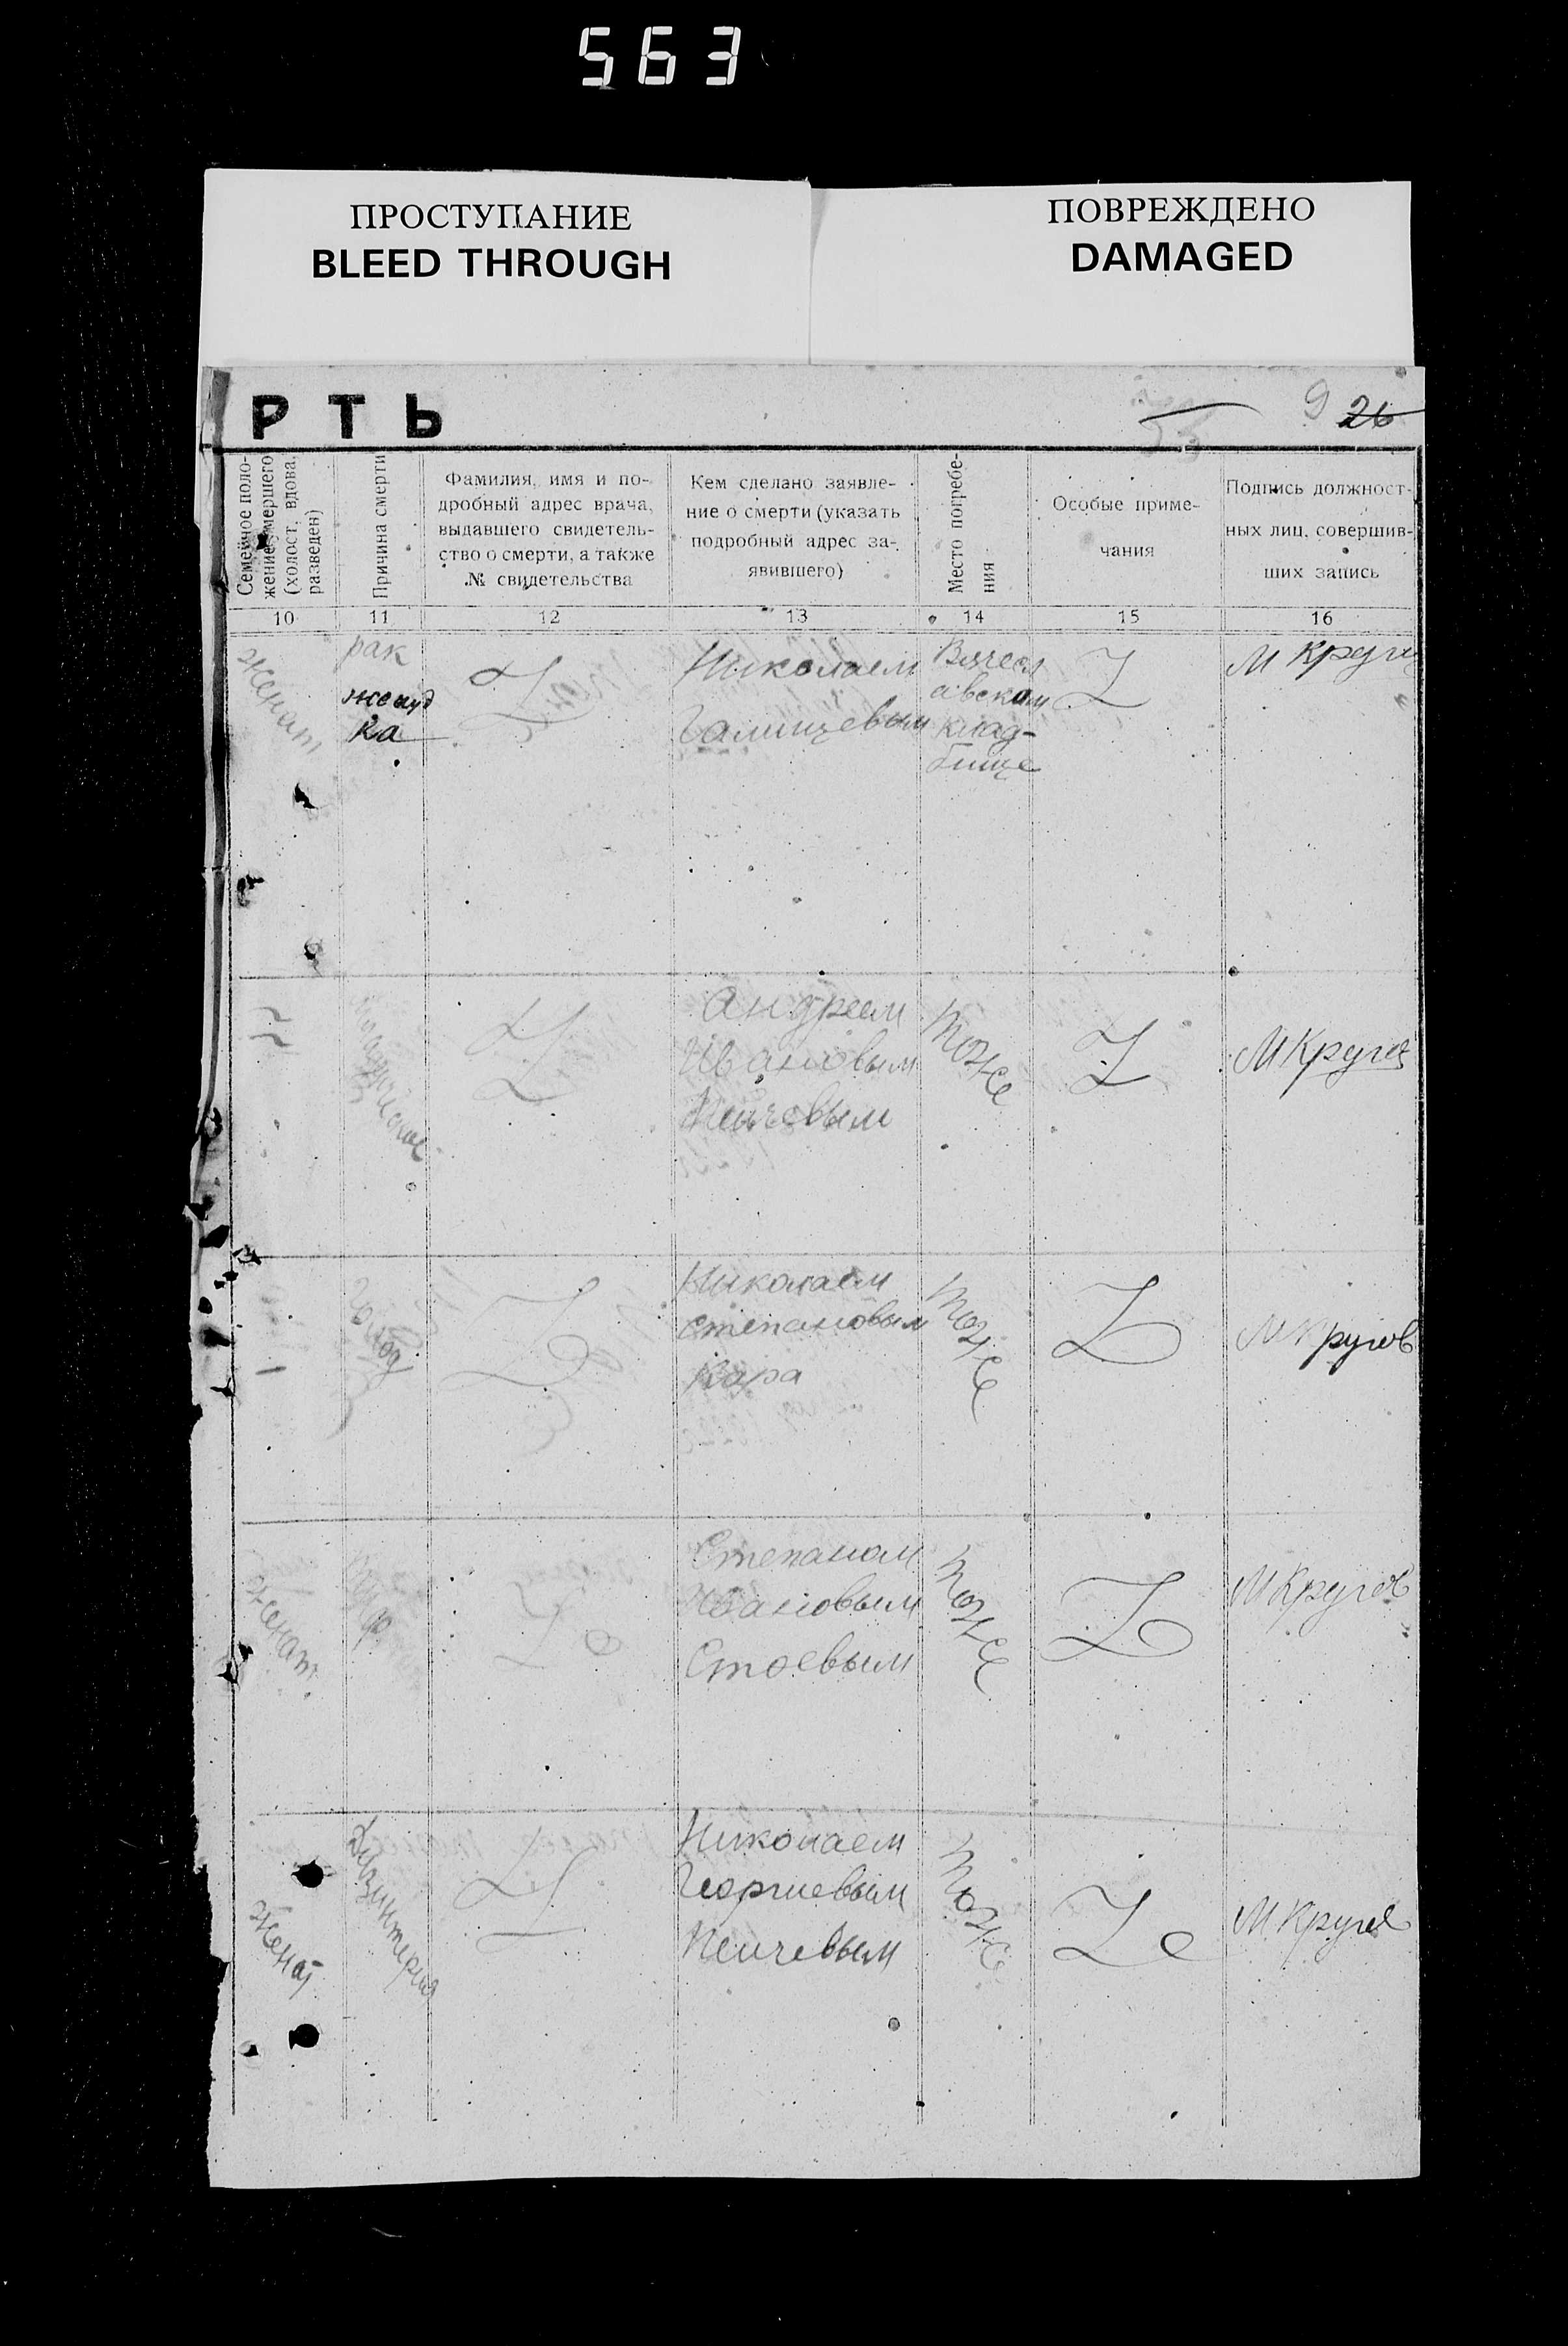 563
ПРОСТУПАНИЕ
BLEED THROUGH
ПОВРЕЖДЕНО
DAMAGED
РТЬ
9 26
Семейное поло-
жение умершего
(холост, вдова,
разведен)
Причина смерти
Фамилия, имя и по-
дробный адрес врача,
выдавшего свидетель-
ство о смерти, а также
№ свидетельства
Кем сделано заявле-
ние о смерти (указать
подробный адрес за-
явившего)
Место погребе-
ния
Особые приме-
чания
Подпись должност-
ных лиц, совершив-
ших запись
10 11 12 13 14 15 16
женат
рак
желуд
ка
Z
Николаем
Галищевым
Вячесл
авском
клад-
бище
Z
М Круг
Z
Андреем
Ивановым
Пейчевым
тоже
Z
М Кругов
голод
Z
Николаем
Степановым
Кара
тоже
Z
М Кругов
женат
Z
Степаном
Ивановым
Стоевым
тоже
Z
М Кругов
женат
Дизинтерия
Z
Николаем
Георгиевым
Пейчевым
тоже
Z
М Кругов